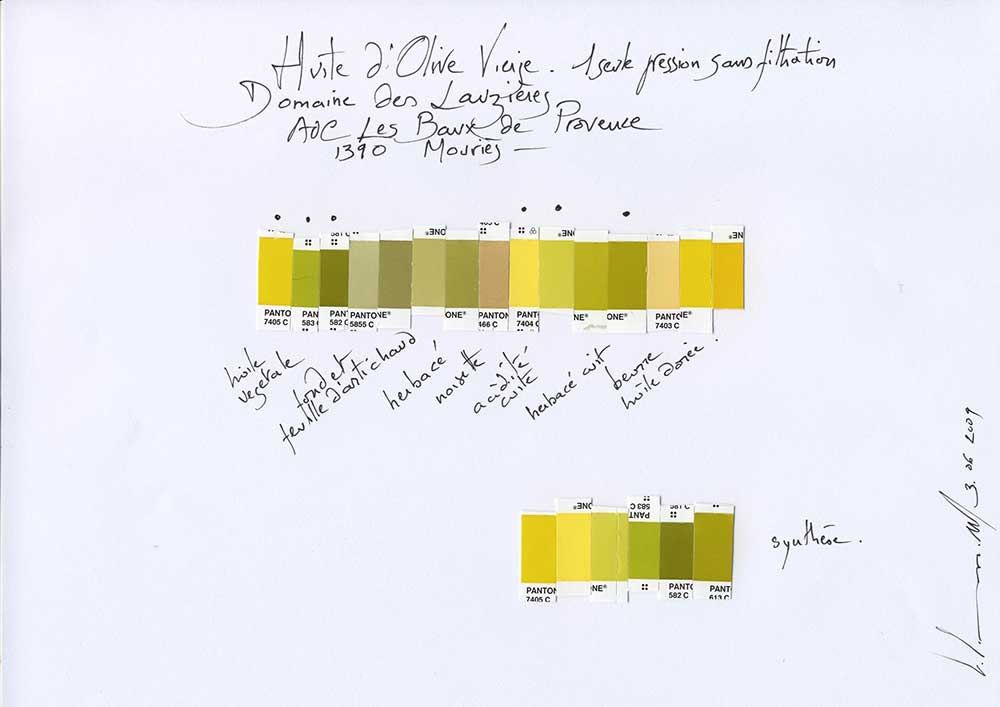 Huile d'Olive Vierge. 1 seule pression sans filtration
Domaine des Lauzières
AOC Les Baux de Provence
1390 Mouriès —
465 C
581 C
ONE®
ONE®
ONE®
PANTO
7405 C
PAN
583
PANT
582 C
PANTO
5855 C
NE®
ONE®
PANTO
466 C
PANT
7404 C
NE®
ONE®
PANTO
7403 C
huile
végétale
fond et
feuille d'artichaud
herbacé
noisette
acidité
cuite
herbacé cuit
beurre
huile dorée.
ONE®
PANT
583 C
581 C
PANTON
7405 C
ONE®
PANTO
582 C
PANTO
613 C
synthèse.
3.06 2009